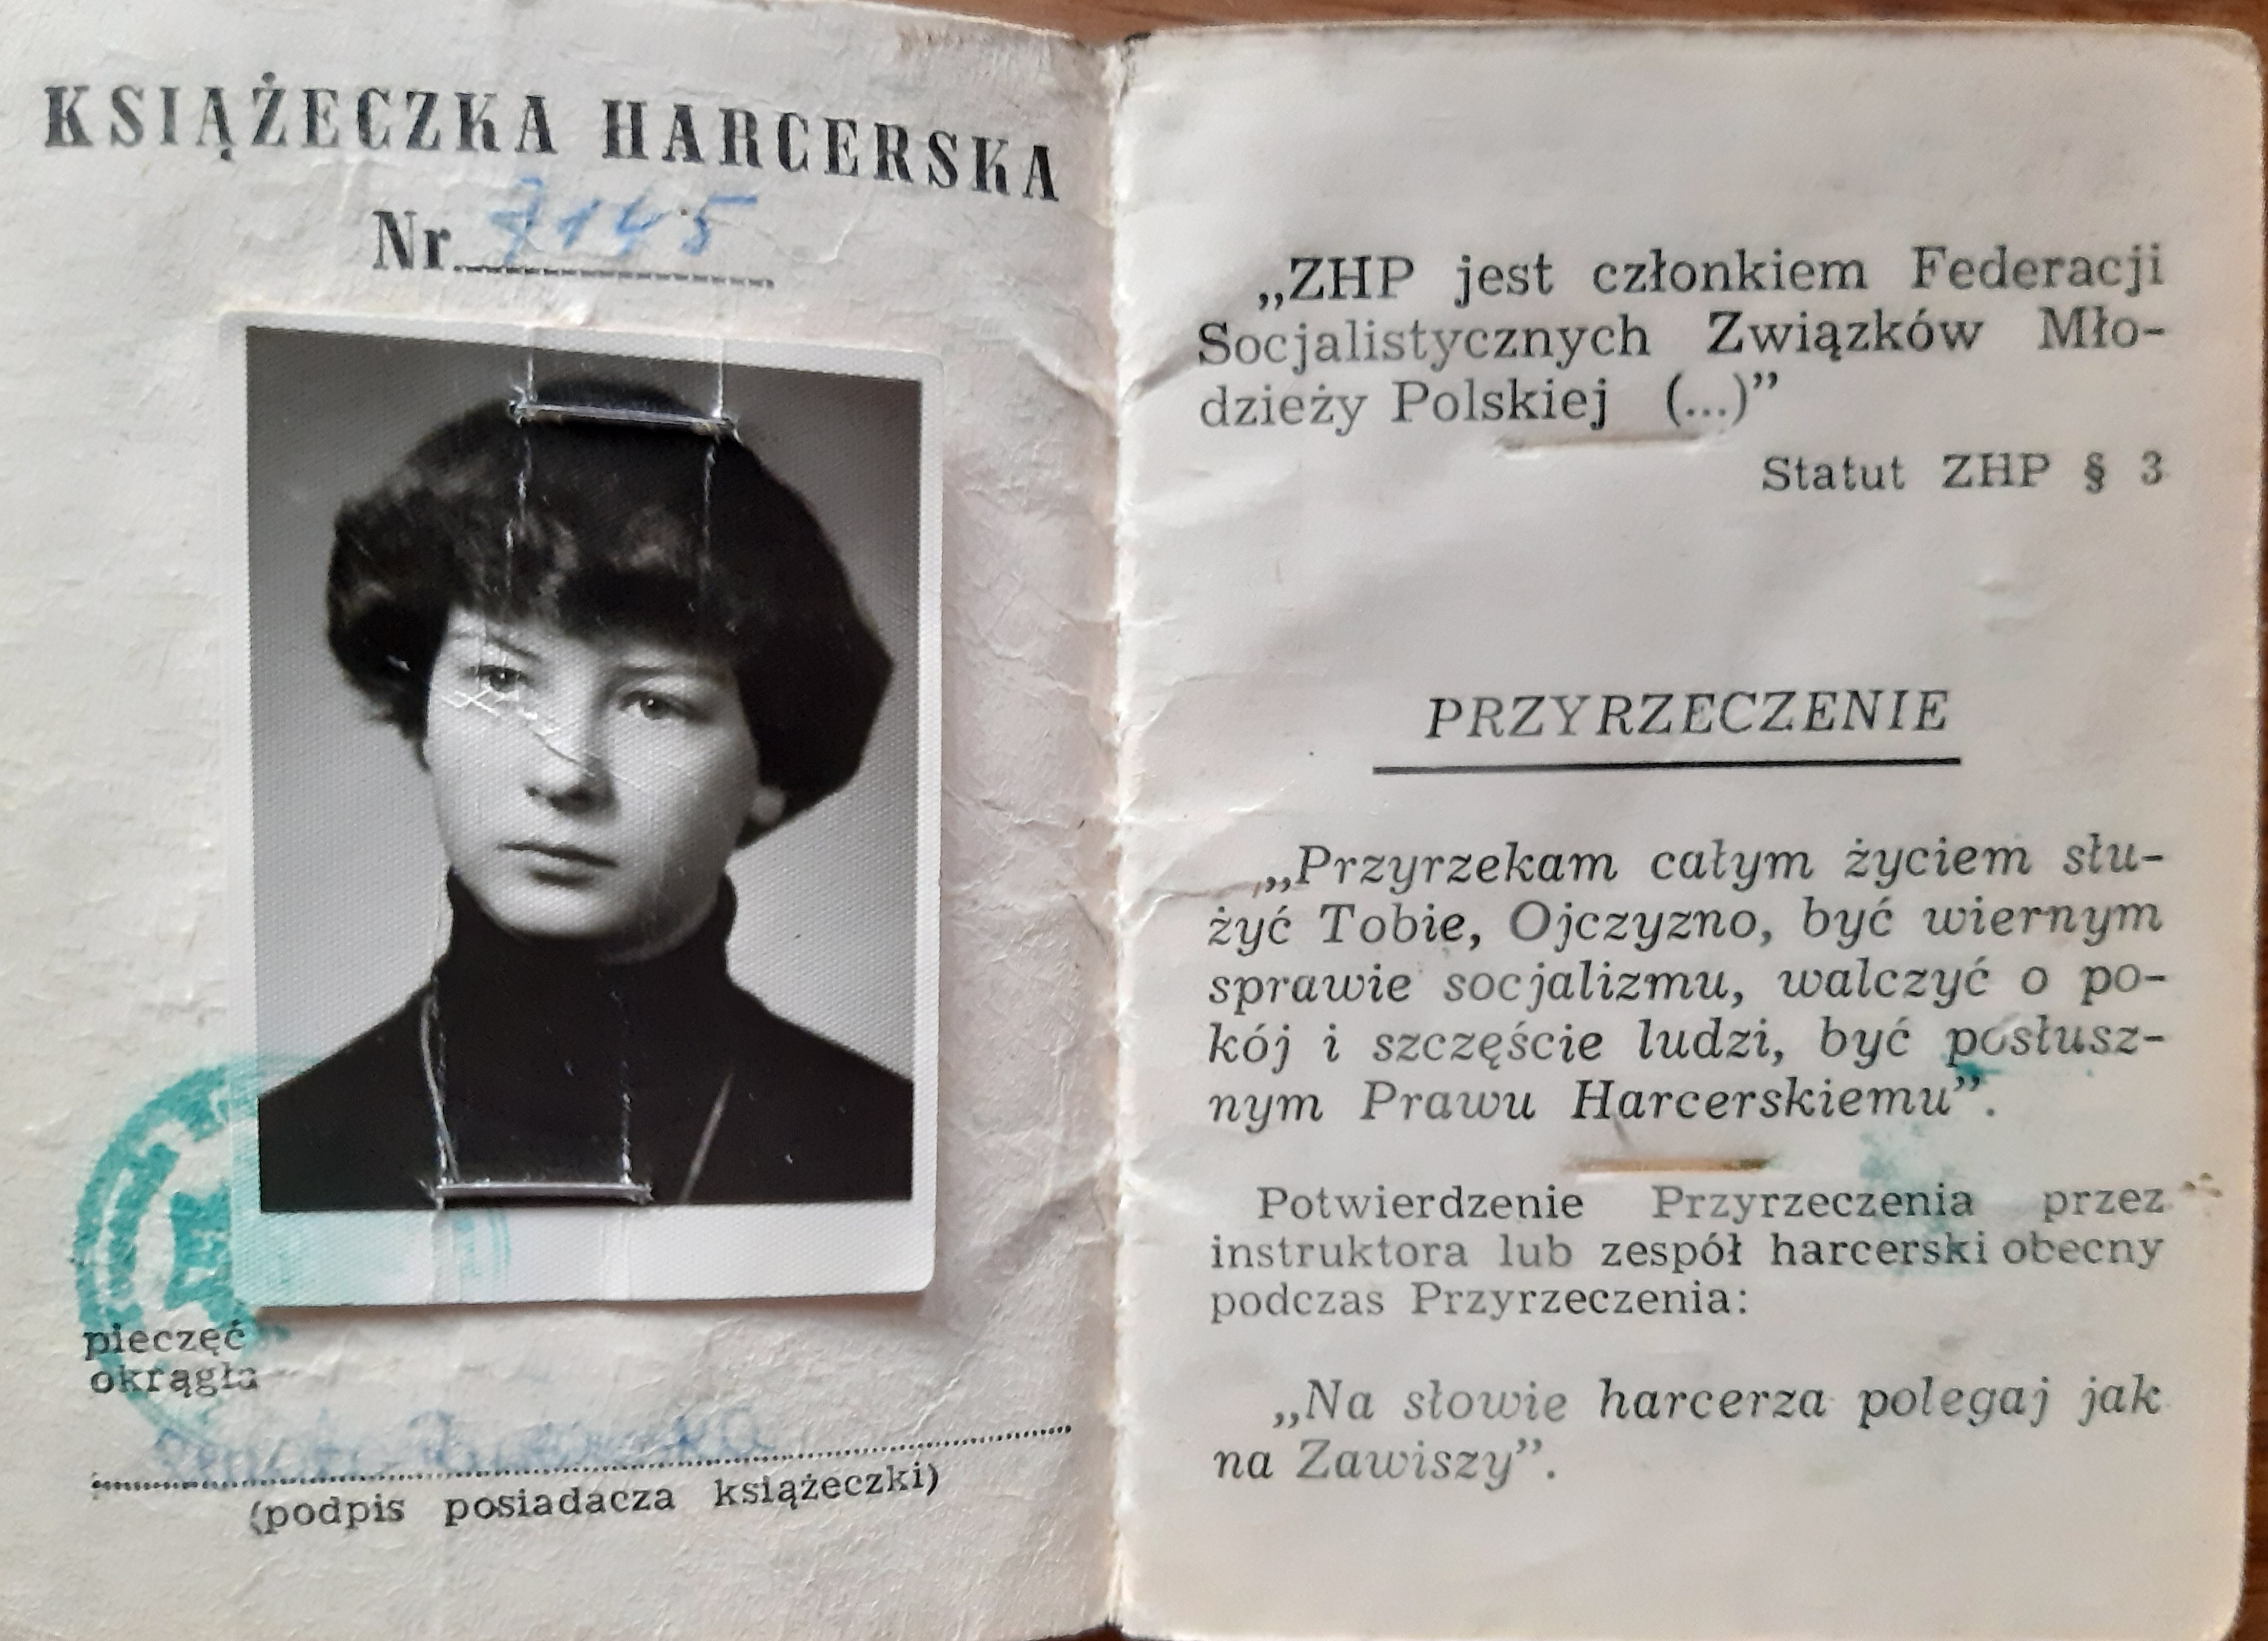 KSIĄŻECZKA HARCERSKA
Nr 7145
pieczęć
okrągła
(podpis posiadacza książeczki)
„ZHP jest członkiem Federacji
Socjalistycznych Związków Mło-
dzieży Polskiej (...)”
Statut ZHP § 3
PRZYRZECZENIE
„Przyrzekam całym życiem słu-
żyć Tobie, Ojczyzno, być wiernym
sprawie socjalizmu, walczyć o po-
kój i szczęście ludzi, być posłusz-
nym Prawu Harcerskiemu”.
Potwierdzenie Przyrzeczenia przez
instruktora lub zespół harcerski obecny
podczas Przyrzeczenia:
„Na słowie harcerza polegaj jak
na Zawiszy”.